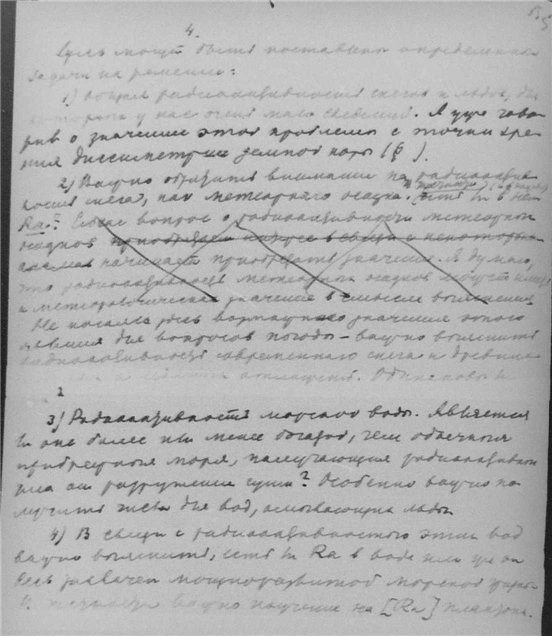 4.
могут быть поставлены определенные
задачи на решение:
1) общая радиоактивность снегов и льдов, для
которых у нас очень мало сведений. Я уже гово
рил о значении этой проблемы с точки зре
ния диссиметрии земной коры (§ ).
2) Важно обратить внимание на радиоактив
ность снега, как метеорного осадка. Есть ли в нем
Ra? Сейчас вопрос о радиоактивности метеорных
осадков
начинает приобретать значение. Я думаю,
что радиоактивность метеорных осадков может иметь
и метеорологическое значение в смысле выяснения
Не касаясь здесь возможного значения этого
явления для вопросов погоды – важно выяснить
радиоактивность современного снега и древних
Одинаковы ли
2
3) Радиоактивность морской воды. Является
ли она более или менее богатой, чем обычные
прибрежные моря, получающие радиоактивные
от разрушения суши? Особенно важно по
лучить их для вод, омывающих льды
4) В связи с радиоактивностью этих вод
важно выяснить, есть ли Ra в воде или же он
весь захвачен мощно развитой морской
В частности важно изучение на [Ra] планктона.